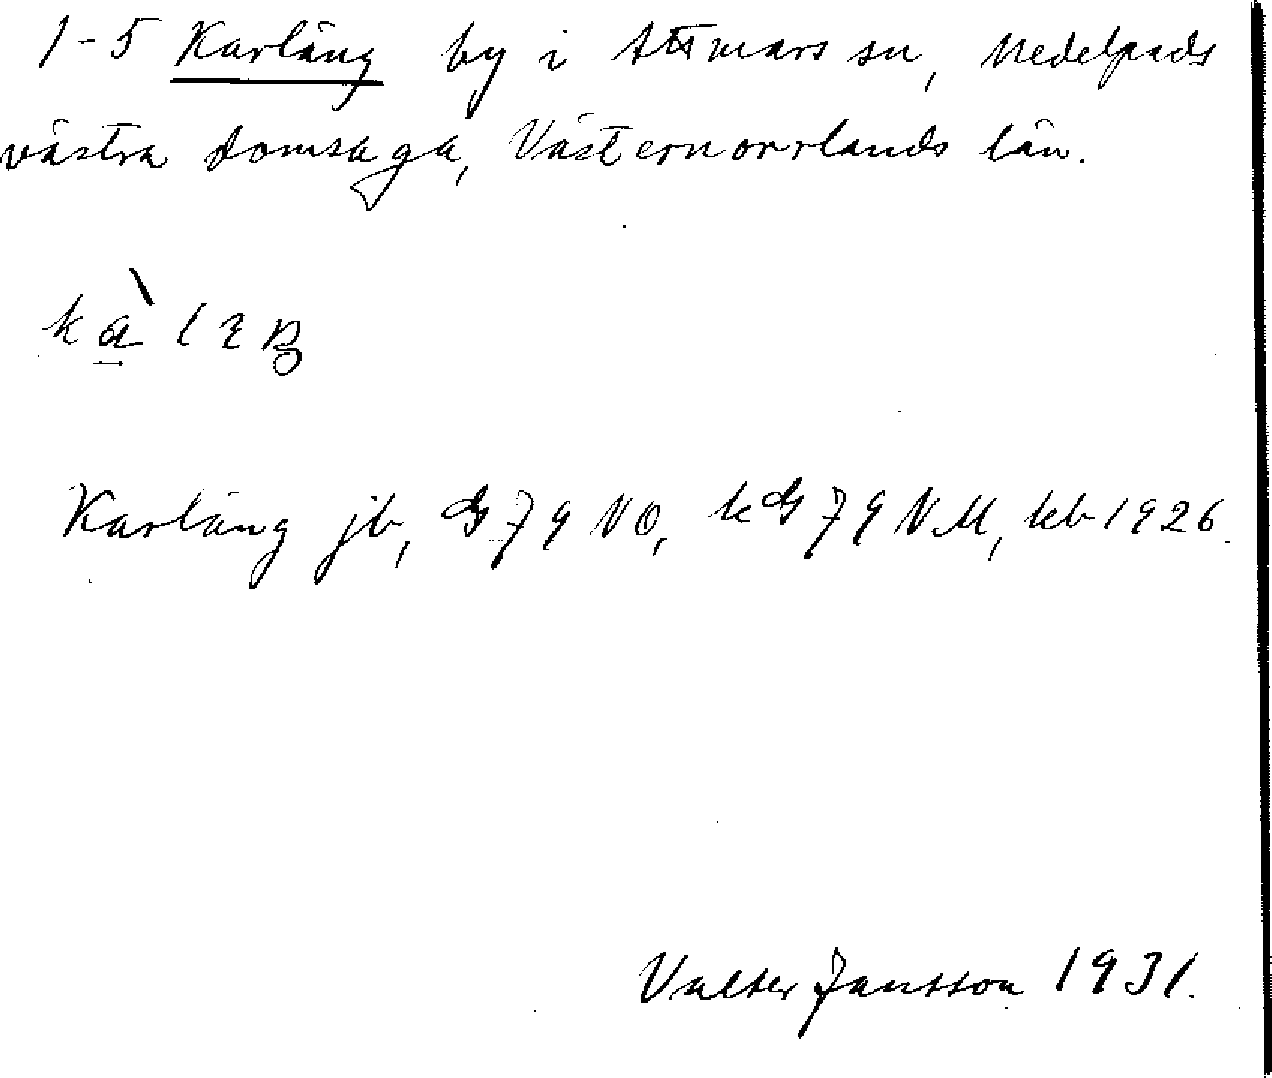 1-5 Karläng by i Attmars sn, Medelpads
västra domsaga, Västernorrlands län.
Karläng jb, G 79 NO, kG 79 NM, kb 1926.
Valter Jansson 1931.